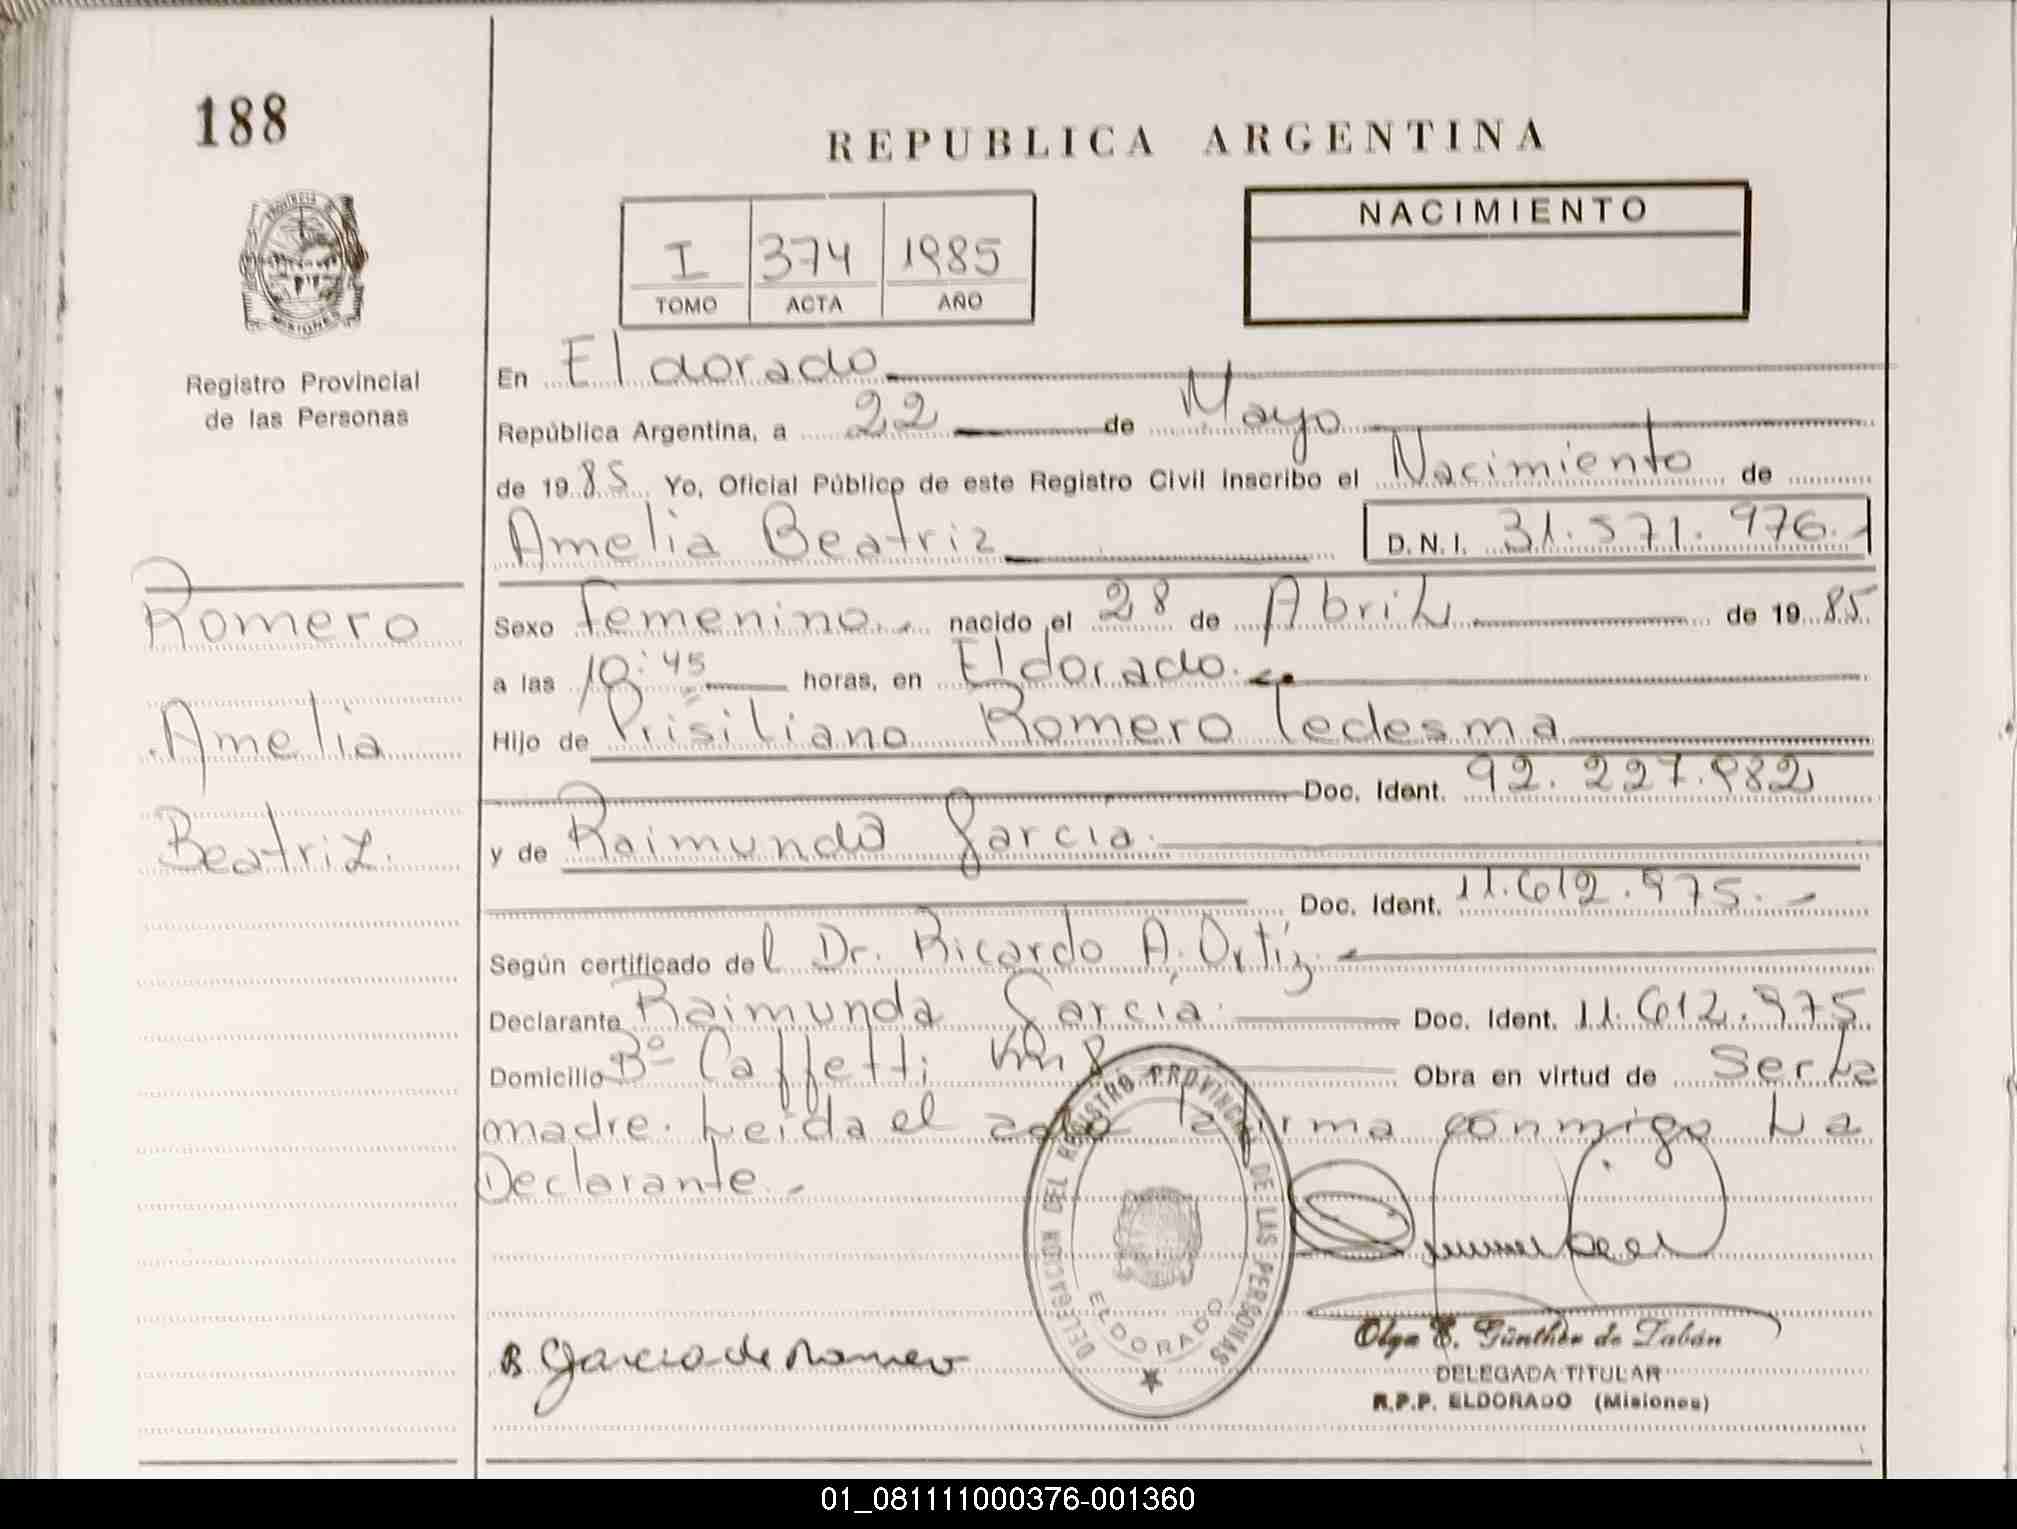 188
REPUBLICA ARGENTINA
PROVINCIA
MISIONES
Registro Provincial
de las Personas
I 374 1985
TOMO ACTA AÑO
NACIMIENTO
En Eldorado
República Argentina, a 22 de Mayo
de 1985 Yo, Oficial Público de este Registro Civil inscribo el Nacimiento de
Amelia Beatriz D.N.I. 31.571.976.-
Romero
Amelia
Beatriz.
Sexo femenino.- nacido el 28 de Abril de 1985
a las 10:45 horas, en Eldorado.
Hijo de Prisiliano Romero Ledesma
Doc. Ident. 92.227.982
y de Raimunda Garcia.
Doc. Ident. 11.612.975.-
Según certificado del Dr. Ricardo A. Ortiz.-
Declarante Raimunda Garcia. Doc. Ident. 11.612.975
Domicilio Bº Caffetti Km 8 Obra en virtud de Ser La
madre. Leida el acta la firma conmigo La
Declarante.-
DELEGACION DEL REGISTRO PROVINCIAL DE LAS PERSONAS
ELDORADO
R Garcia de Romero
Olga E. Günther de Tabán
DELEGADA TITULAR
R.P.P. ELDORADO (Misiones)
01_081111000376-001360